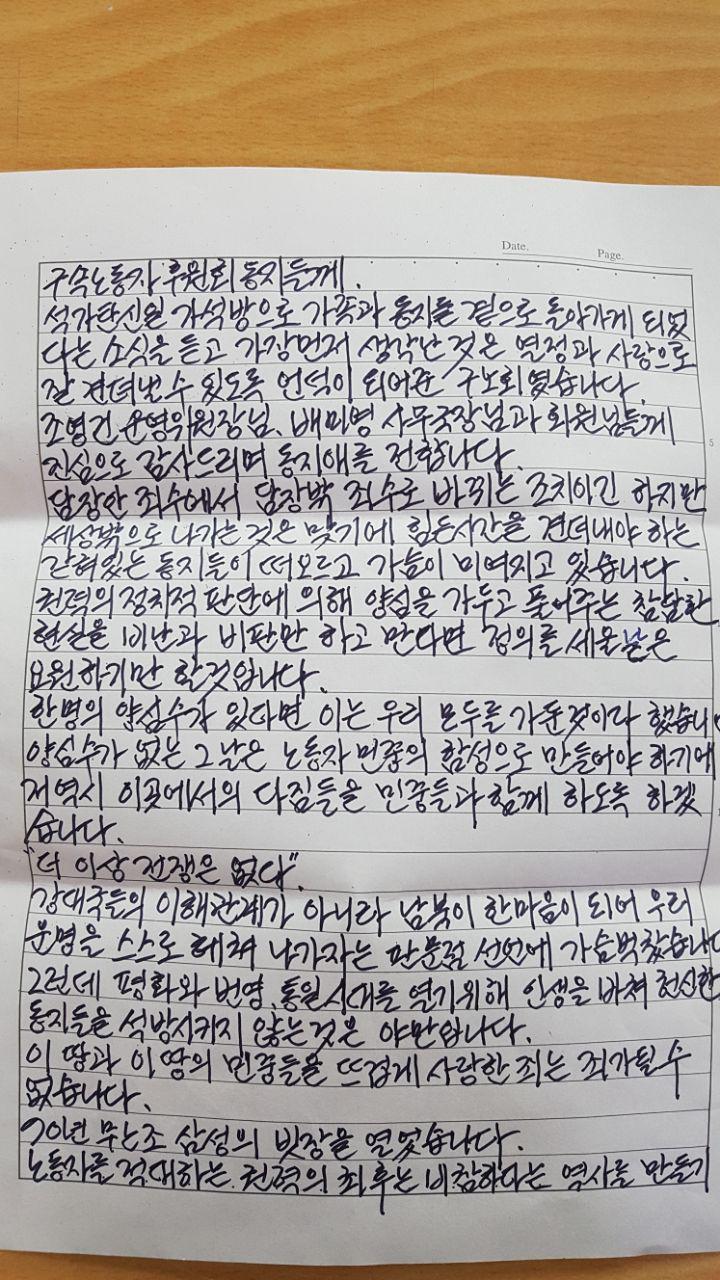 Date. Page.
구속노동자 후원회 동지들께.
석가탄신일 가석방으로 가족과 동지들 곁으로 돌아가게 되었
다는 소식을 듣고 가장먼저 생각난 것은 열정과 사랑으로
잘 견뎌낼 수 있도록 언덕이 되어준 구노회였습니다.
조영건 운영위원장님, 배미영 사무국장님과 회원님들께
진심으로 감사드리며 동지애를 전합니다.
담장안 죄수에서 담장밖 죄수로 바뀌는 조치이긴 하지만
세상밖으로 나가는 것은 맞기에 힘든시간을 견뎌내야 하는
갇혀있는 동지들이 떠오르고 가슴이 미여지고 있습니다.
권력의 정치적 판단에 의해 양심을 가두고 풀어주는 참담한
현실을 비난과 비판만 하고 만다면 정의를 세울날은
요원하기만 할것입니다.
한명의 양심수가 있다면 이는 우리 모두를 가둔것이라 했습니다
양심수가 없는 그날은 노동자 민중의 함성으로 만들어야 하기에
저역시 이곳에서의 다짐들을 민중들과 함께 하도록 하겠
습니다.
"더 이상 전쟁은 없다".
강대국들의 이해관계가 아니라 남북이 한마음이 되어 우리
운명을 스스로 헤쳐 나가자는 판문점 선언에 가슴벅찼습니다
그런데 평화와 번영, 통일시대를 열기위해 인생을 바쳐 헌신한
동지들을 석방시키지 않는것은 야만입니다.
이 땅과 이 땅의 민중들을 뜨겁게 사랑한 죄는 죄가될 수
없습니다.
70년 무노조 삼성의 빗장을 열었습니다.
노동자를 적대하는 권력의 최후는 비참하다는 역사를 만들기